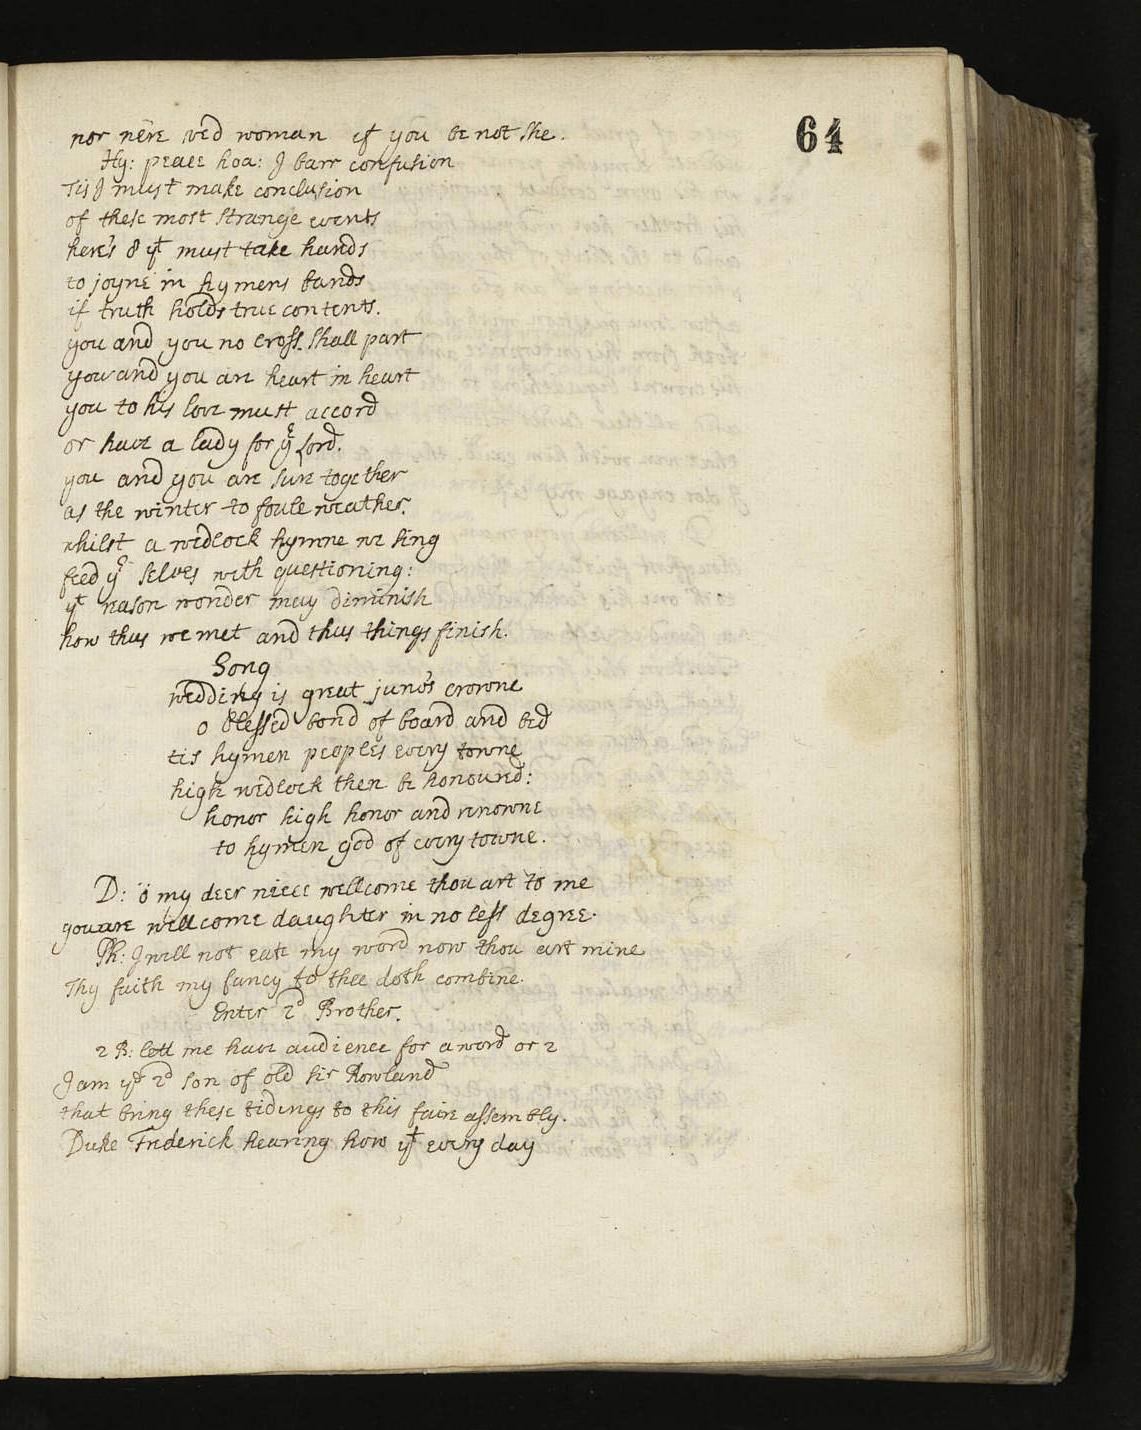 64
nor ne're wed woman if you be not she.
Hy: peace hoa: I barr confusion
Tis I must make conclusion
of these most strange events
here's 8 yt must take hands
to joyne in hymens bands
if truth holds true contents.
you and you no cross shall part
you and you are heart in heart
you to his love must accord
or have a lady for yr lord.
you and you are sure together
as the winter to foule weather.
whilst a wedlock hymne we sing
feed yr selves with questioning:
yt reason wonder may diminish
how thus we met and thus things finish.
Song
wedding is great juno's crowne
o blessed bond of board and bed
tis hymen peoples every towne
high wedlock then be honoured:
honor high honor and renowne
to hymen god of every towne.
D: o my deer neece wellcome thou art to me
you are wellcome daughter in no less degree.
Ph: I will not eate my word now thou art mine
Thy faith my fancy to thee doth combine.
Enter 2d Brother.
2 B: lett me have audience for a word or 2
I am ye 2d son of old Sir Rowland
that bring these tidings to this faire assembly.
Duke Frederick hearing how yt every day